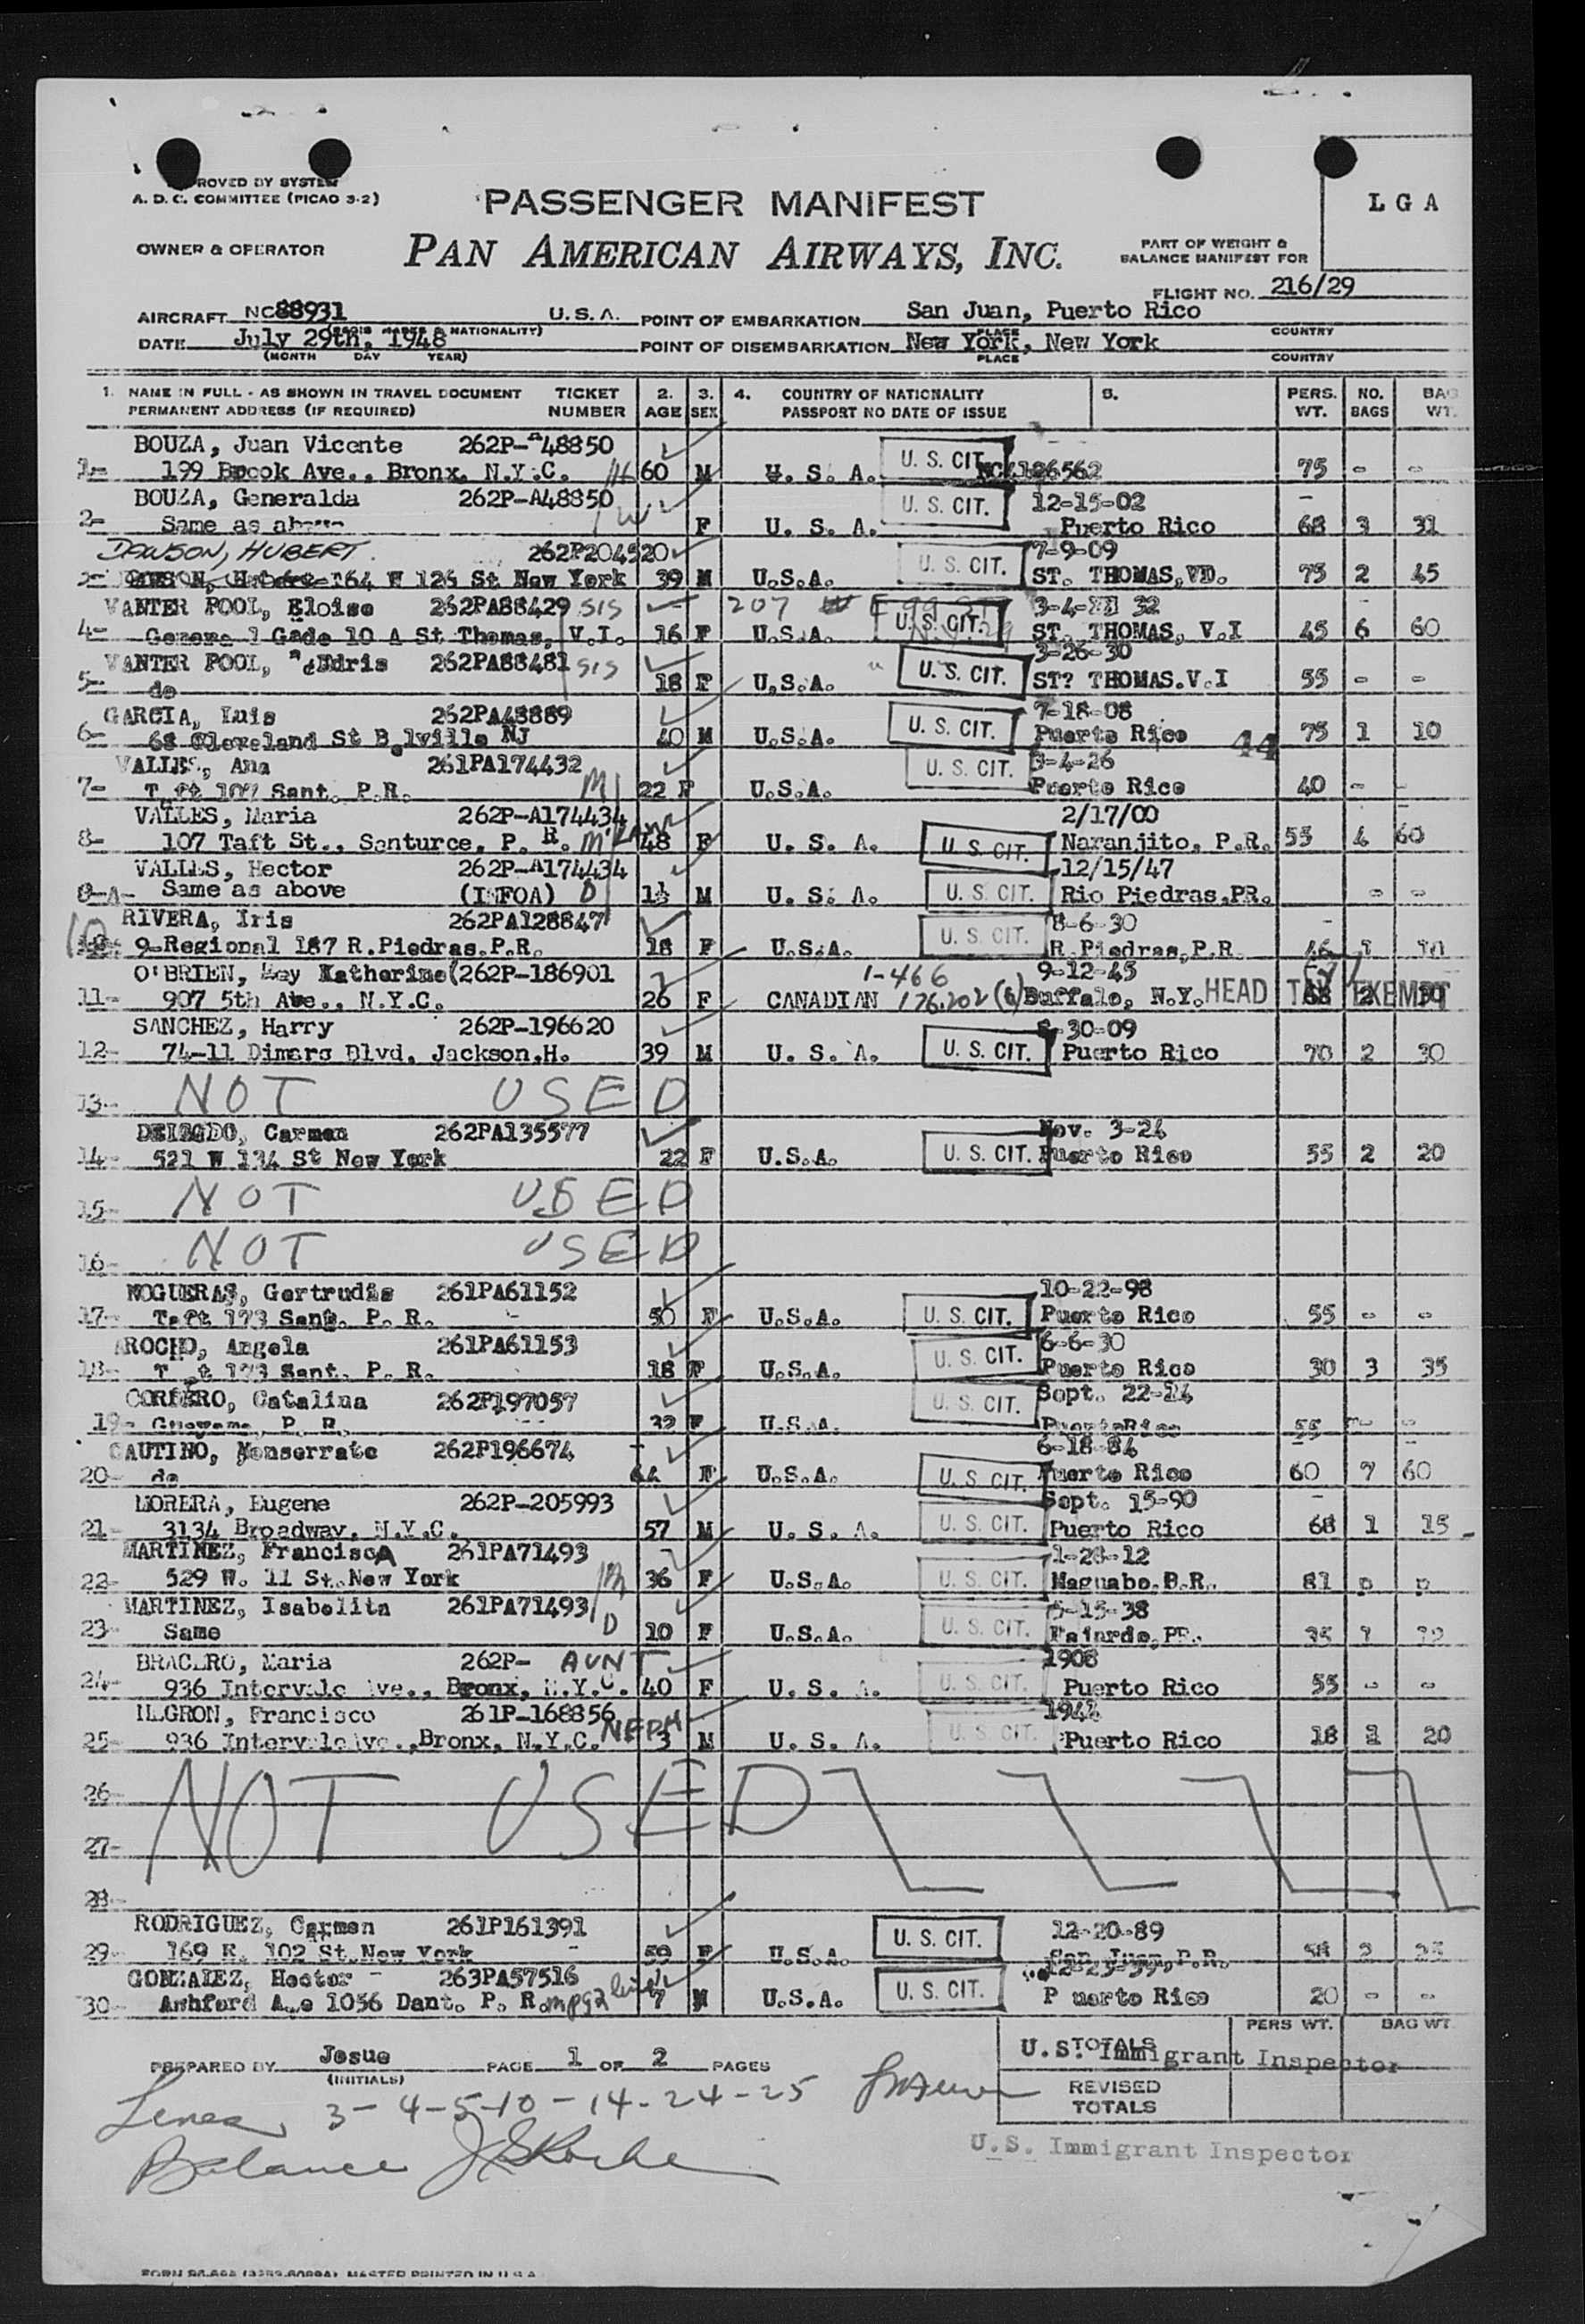 PROVED BY SYSTEM
A. D. C. COMMITTEE (PICAO 3-2)
PASSENGER MANIFEST
L G A
OWNER & OPERATOR
PAN AMERICAN AIRWAYS, INC.
PART OF WEIGHT &
BALANCE MANIFEST FOR
FLIGHT NO. 216/29
AIRCRAFT NC88931 U.S.A. POINT OF EMBARKATION San Juan, Puerto Rico
PLACE COUNTRY
DATE July 29th, 1948 POINT OF DISEMBARKATION New York, New York
(MONTH DAY YEAR) PLACE COUNTRY
1. NAME IN FULL - AS SHOWN IN TRAVEL DOCUMENT TICKET 2. 3. 4. COUNTRY OF NATIONALITY 5. PERS. NO. BAG
PERMANENT ADDRESS (IF REQUIRED) NUMBER AGE SEX PASSPORT NO DATE OF ISSUE WT. BAGS WT.
BOUZA, Juan Vicente 262P-A48850
1- 199 Brook Ave., Bronx, N.Y.C. H 60 M U. S. A. U. S. CIT. 75 - -
BOUZA, Generalda 262P-A48850 12-15-02
2- Same as above W F U. S. A. U. S. CIT. Puerto Rico 68 3 31
DAWSON, HUBERT. 262P204520 7-9-09
164 W 126 St New York 39 M U.S.A. U. S. CIT. ST. THOMAS,VD. 75 2 45
VANTER POOL, Eloise 262PA88429 SIS 207 3-4- 32
4- Gade 10 A St Thomas, V.I. 16 F U.S.A. U. S. CIT. ST. THOMAS, V.I 45 6 60
VANTER POOL, 262PA88481 SIS 3-26-30
5- do 18 F U.S.A. U. S. CIT. ST? THOMAS.V.I 55 - -
GARCIA, Luis 262PA48889 7-18-08
6- 68 Cleveland St Belville NJ 40 M U.S.A. U. S. CIT. Puerto Rico 44 75 1 10
VALLES, Ana 261PA174432 -4-26
7- Taft 107 Sant. P.R. M 22 F U.S.A. U. S. CIT. Puerto Rico 40 - -
VALLES, Maria 262P-A174434 2/17/00
8- 107 Taft St., Santurce, P. R. 48 F U. S. A. U. S. CIT. Naranjito, P.R. 55 4 60
VALLES, Hector 262P-A174434 12/15/47
8-A- Same as above (INFOA) D 1½ M U. S. A. U. S. CIT. Rio Piedras,PR. - -
RIVERA, Iris 262PA128847 8-6-30
10 9-Regional 187 R.Piedras.P.R. 18 F U.S.A. U. S. CIT. R.Piedras,P.R 46 1 10
O'BRIEN, May Katherine 262P-186901 1-466 9-12-45
11- 907 5th Ave., N.Y.C. 26 F CANADIAN 176.202 (6) Buffalo, N.Y. HEAD TAX EXEMPT
SANCHEZ, Harry 262P-196620 -30-09
12- 74-11 Dimars Blvd, Jackson,H. 39 M U. S. A. U. S. CIT. Puerto Rico 70 2 30
13- NOT USED
DELGADO, Carmen 262PA135577 Nov. 3-24
14- 521 W 134 St New York 22 F U.S.A. U. S. CIT. Puerto Rico 55 2 20
15- NOT USED
16- NOT USED
NOGUERAS, Gertrudis 261PA61152 10-22-98
17- Taft 173 Sant. P. R. 50 F U.S.A. U. S. CIT. Puerto Rico 55 - -
AROCHO, Angela 261PA61153 6-6-30
18- 173 Sant. P. R. 18 F U.S.A. U. S. CIT. Puerto Rico 30 3 35
CORDERO, Catalina 262P197057 Sept. 22-
19- P. R. F U.S.A. U. S. CIT. Puerto Rico 55 - -
CAUTINO, Monserrate 262P196674 6-18-84
20- do F U.S.A. U. S. CIT. Puerto Rico 60 7 60
MORERA, Eugene 262P-205993 Sept. 15-90
21- 3134 Broadway, N.Y.C. 57 M U. S. A. U. S. CIT. Puerto Rico 68 1 15
MARTINEZ, FranciscA 261PA71493 1-28-12
22- 529 W. 11 St.New York M 36 F U.S.A. U. S. CIT. Naguabo.P.R. 81
MARTINEZ, Isabelita 261PA71493 5-15-38
23- Same D 10 F U.S.A. U. S. CIT. Fajardo,PR.
BRACERO, Maria 262P- AUNT 1908
24- 936 Intervale Ave., Bronx, N.Y.C. 40 F U. S. A. U. S. CIT. Puerto Rico 55 - -
NEGRON, Francisco 261P-168856 NEPH 1944
25- 936 Intervale Ave.,Bronx, N.Y.C. 3 M U. S. A. U. S. CIT. Puerto Rico 18 1 20
26-
27- NOT USED
28-
RODRIGUEZ, Carmen 261P161391 12-20-89
29- 169 E. 102 St.New York 59 F U.S.A. U. S. CIT. San Juan,P.R.
GONZALEZ, Hector 263PA57516
30- Ashford Ave 1056 Sant. P. R. 7 M U.S.A. U. S. CIT. P uerto Rico 20 - -
PERS WT. BAG WT.
PREPARED BY Josue PAGE 1 OF 2 PAGES TOTALS
(INITIALS) U.S. Immigrant Inspector
Lines 3-4-5-10-14-24-25 REVISED
TOTALS
Balance
U.S. Immigrant Inspector